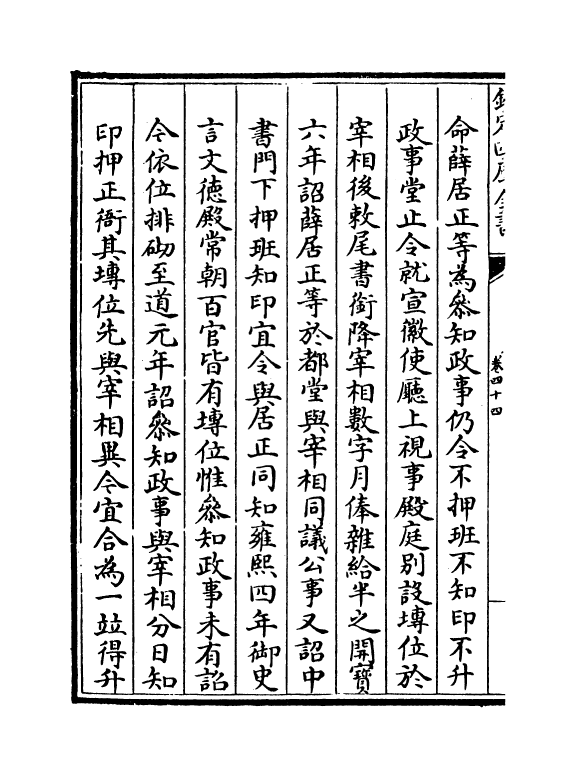 欽定四庫全書
卷四十四
命薛居正等為叅知政事仍令不押班不知印不升
政事堂止令就宣徽使廳上視事殿庭别設塼位於
宰相後敕尾書銜降宰相數字月俸雜給半之開寶
六年詔薛居正等於都堂與宰相同議公事又詔中
書門下押班知印宜令與居正同知雍熙四年御史
言文德殿常朝百官皆有塼位惟叅知政事未有詔
令依位排砌至道元年詔叅知政事與宰相分日知
印押正衙其塼位先與宰相異令宜合為一竝得升